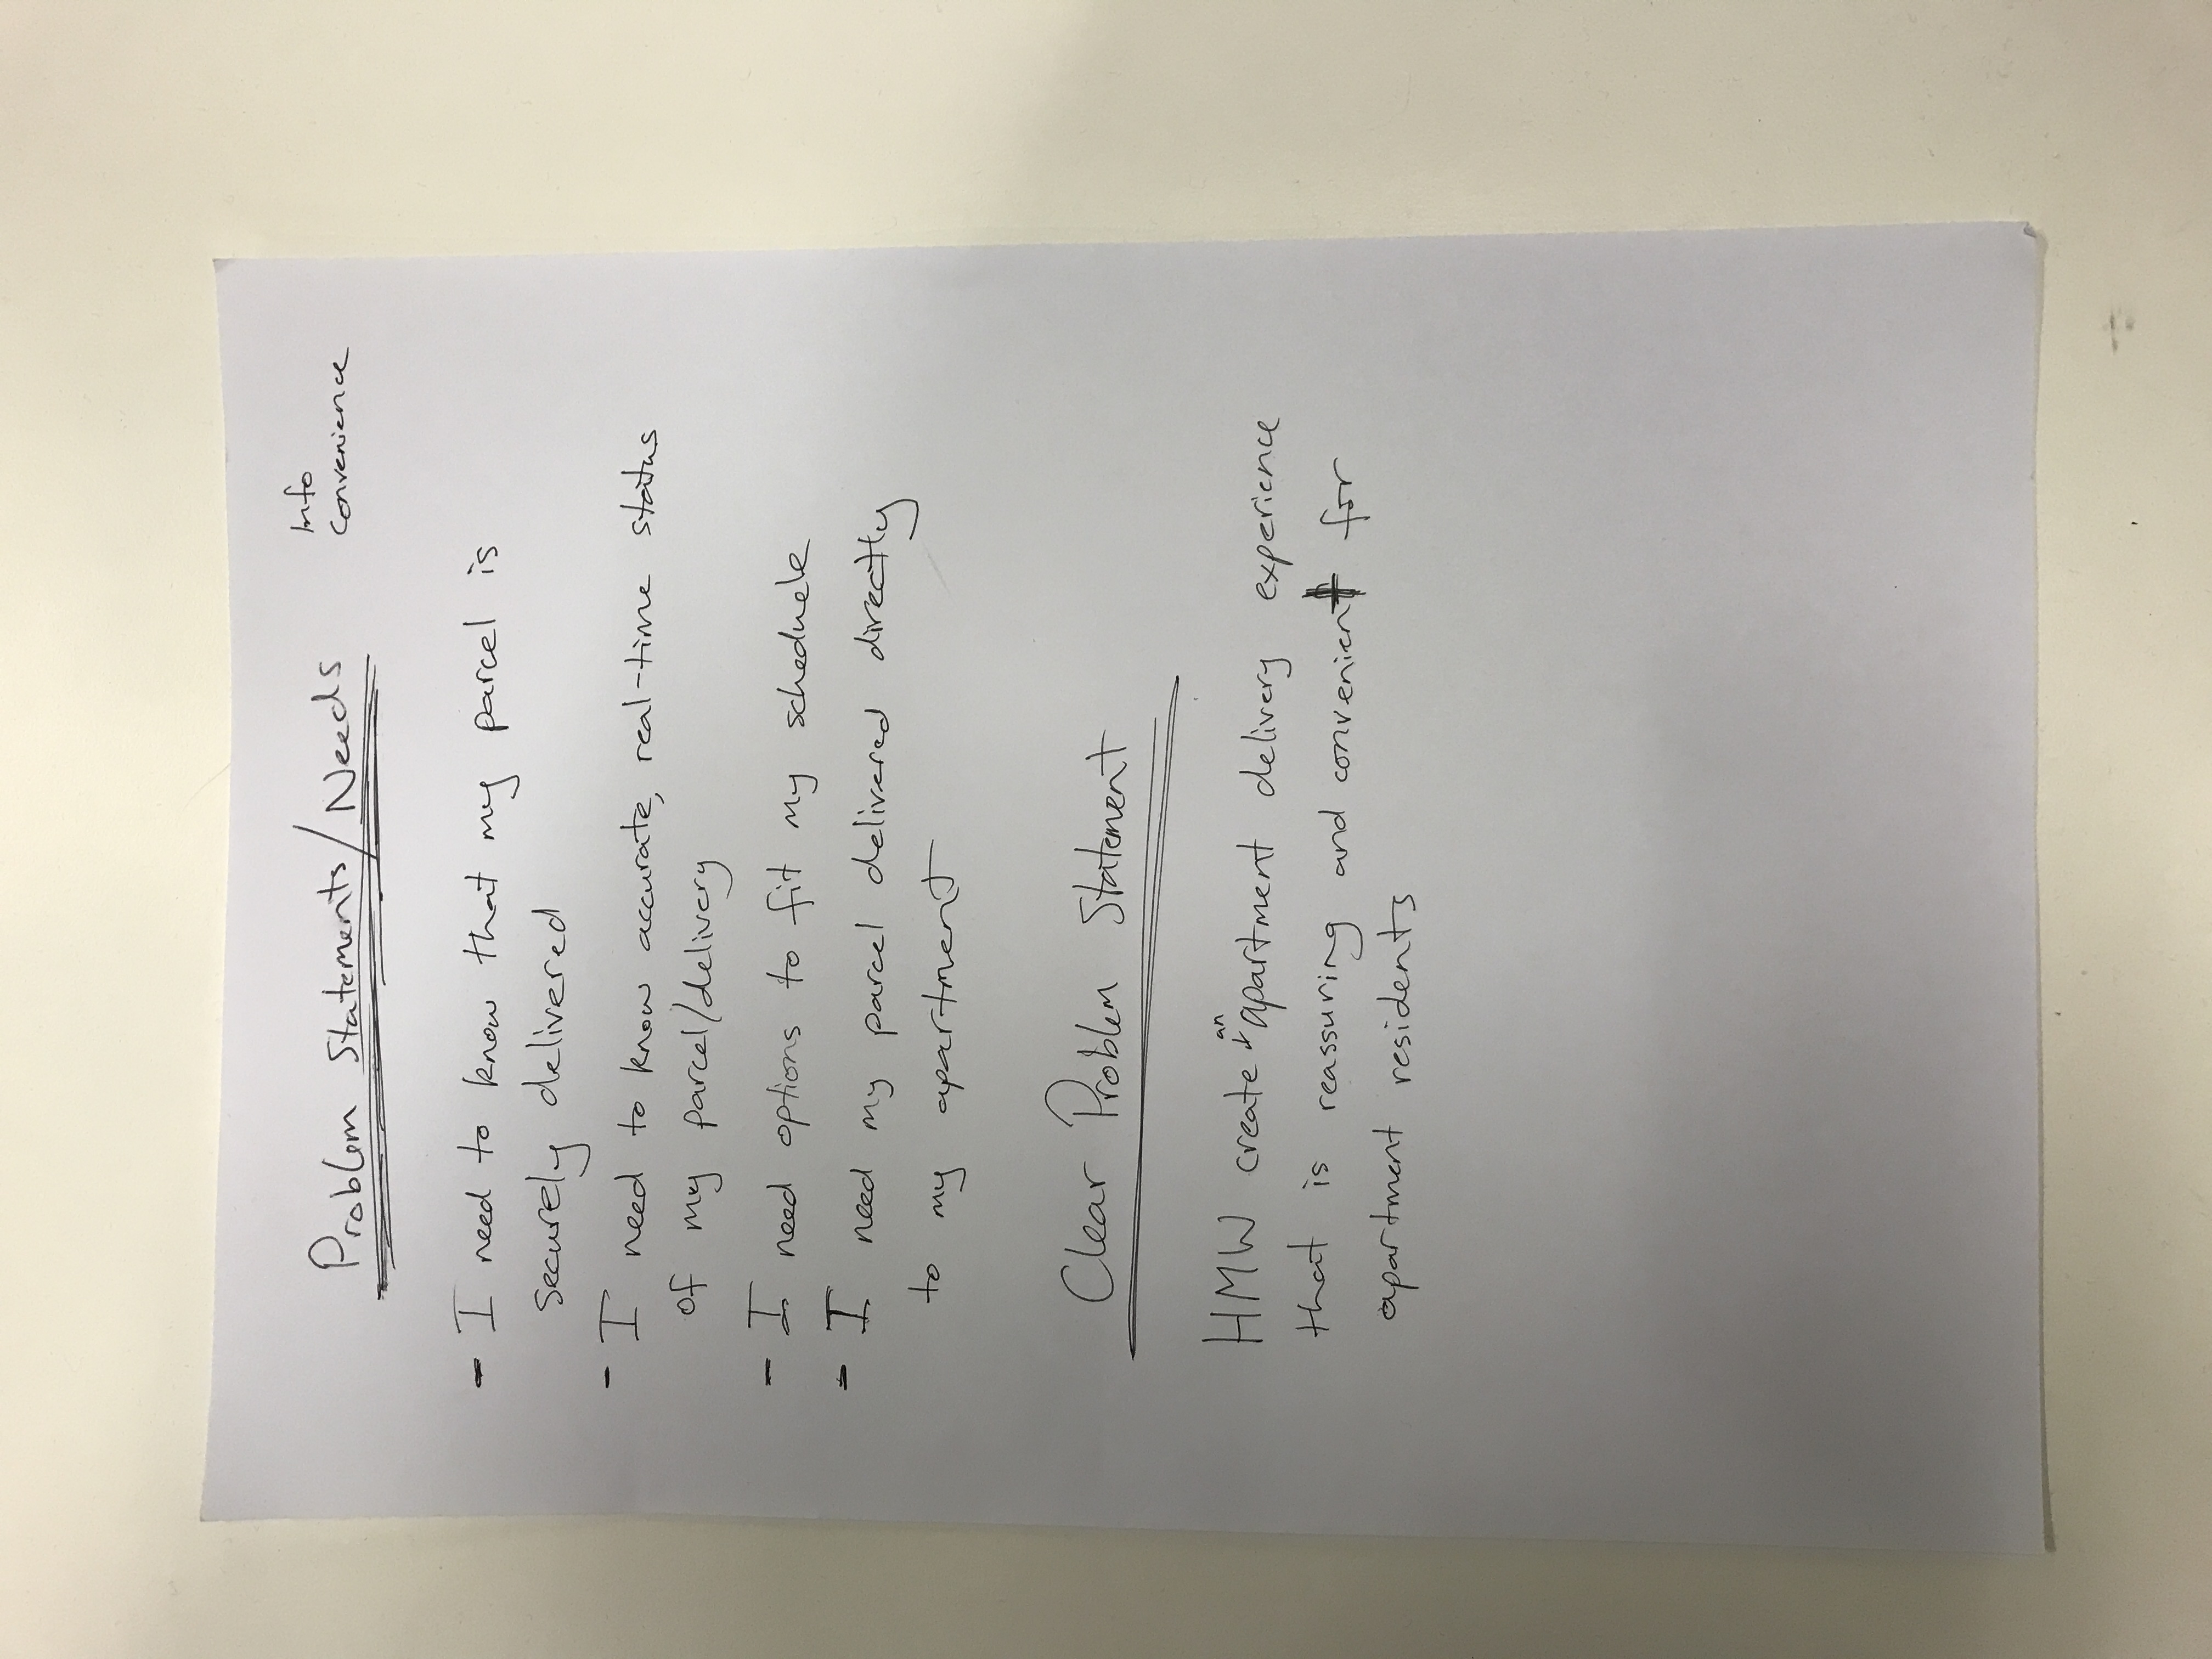 Problem Statements/Needs
Info
Convenience
- I need to know that my parcel is
securely delivered
- I need to know accurate, real-time status
of my parcel/delivery
- I need options to fit my schedule
- I need my parcel delivered directly
to my apartment
Clear Problem Statement
an
HMW create ↓ apartment delivery experience
that is reassuring and convenient for
apartment residents